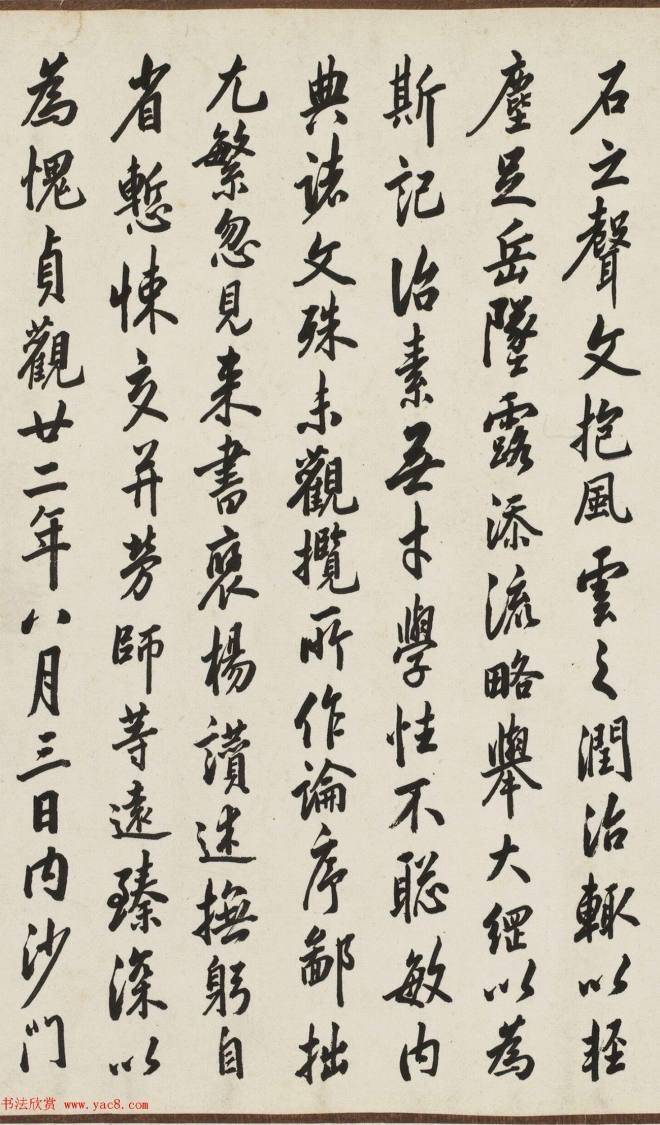 石之聲文抱風雲之潤治輒以輕
塵足岳墜露添流略舉大綱以為
斯記治素無才學性不聡敏內
典諸文殊未觀攬所作論序鄙拙
尤繁忽見來書褒楊讚述撫躬自
省慙悚交并勞師等遠臻深以
為愧貞觀廿二年八月三日內沙門
书法欣赏 www.yac8.com